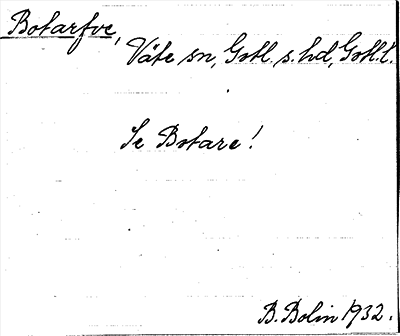 Botarfve,
Väte sn, Gotl. s. hd, Gotl. l.
Se Botare!
B. Bolin 1932.